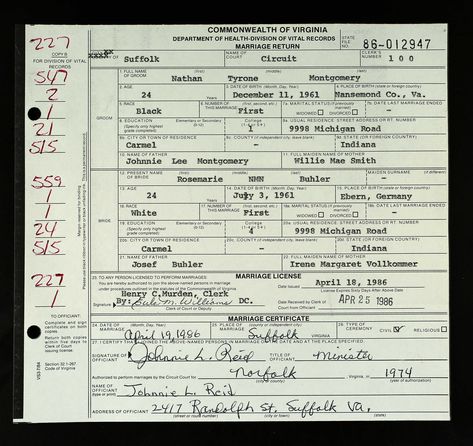 COMMONWEALTH OF VIRGINIA
DEPARTMENT OF HEALTH-DIVISION OF VITAL RECORDS
MARRIAGE RETURN
STATE FILE NO. 86-012947
COPY B
FOR DIVISION OF VITAL RECORDS
227
547
2
1
21
515
559
1
1
24
515
227
1
Margin reserved for binding
Suffolk
COURT Circuit
CLERK'S 100
1. FULL NAME OF GROOM (first) (middle) (last)
Nathan Tyrone Montgomery
GROOM
2. AGE 24
3. DATE OF BIRTH (Month, Day, Year) December 11, 1961
4. PLACE OF BIRTH (State or Foreign Country) Nansemond Co., Va.
5. RACE Black
6. NUMBER OF THIS MARRIAGE (first, second, etc.) First
7a. MARITAL STATUS (if previously married) WIDOWED DIVORCED
7b. DATE LAST MARRIAGE ENDED –
8. EDUCATION (Specify only highest grade completed) Elementary or Secondary (0-12) College (1-4 or 5+) 1
9a. USUAL RESIDENCE STREET ADDRESS OR RT. NUMBER
9998 Michigan Road
9b. CITY OR TOWN OF RESIDENCE Carmel
9c. COUNTY (if independent city, leave blank) –
9d. STATE (OR FOREIGN COUNTRY) Indiana
10. NAME OF FATHER Johnnie Lee Montgomery
11. FULL MAIDEN NAME OF MOTHER Willie Mae Smith
12. PRESENT NAME OF BRIDE (first) (middle) (last)
Rosemarie NMN Buhler
MAIDEN SURNAME (if different) –
BRIDE
13. AGE 24
14. DATE OF BIRTH (Month, Day, Year) July 3, 1961
15. PLACE OF BIRTH (State or Foreign Country) Ebern, Germany
16. RACE White
17. NUMBER OF THIS MARRIAGE (first, second, etc.) First
18a. MARITAL STATUS (if previously married) WIDOWED DIVORCED
18b. DATE LAST MARRIAGE ENDED –
19. EDUCATION (Specify only highest grade completed) Elementary or Secondary (0-12) College (1-4 or 5+)
20a. USUAL RESIDENCE STREET ADDRESS OR RT. NUMBER
9998 Michigan Road
20b. CITY OR TOWN OF RESIDENCE Carmel
20c. COUNTY (if independent city, leave blank) –
20d. STATE (OR FOREIGN COUNTRY) Indiana
21. NAME OF FATHER Josef Buhler
22. FULL MAIDEN NAME OF MOTHER Irene Margaret Vollkommer
MARRIAGE LICENSE
23. TO ANY PERSON LICENSED TO PERFORM MARRIAGES:
You are hereby authorized to join the above named persons in marriage
under procedures outlined in the statutes of the Commonwealth of Virginia
Henry C. Murden, Clerk
Signature By: DC.
April 18, 1986
License Expires Sixty Days After Above Date
Date Received by Clerk of Court APR 25 1986
TO OFFICIANT:
Complete and sign certificates on both copies
Return both copies within five days to Clerk of Court issuing license.
Section 32.1-267 of the Code of Virginia
VS3-7/84
MARRIAGE CERTIFICATE
24. DATE OF MARRIAGE (Month, Day, Year) April 19, 1986
25. PLACE OF MARRIAGE Suffolk VIRGINIA
26. TYPE OF CEREMONY CIVIL RELIGIOUS
SIGNATURE OF OFFICIANT Johnnie L. Reid
TITLE OF OFFICIANT Minister
Authorized to perform marriages by the Circuit Court for Norfolk (city or county) Virginia, in 1974
NAME OF OFFICIANT Johnnie L. Reid
ADDRESS OF OFFICIANT 2417 Randolph St. Suffolk Va.